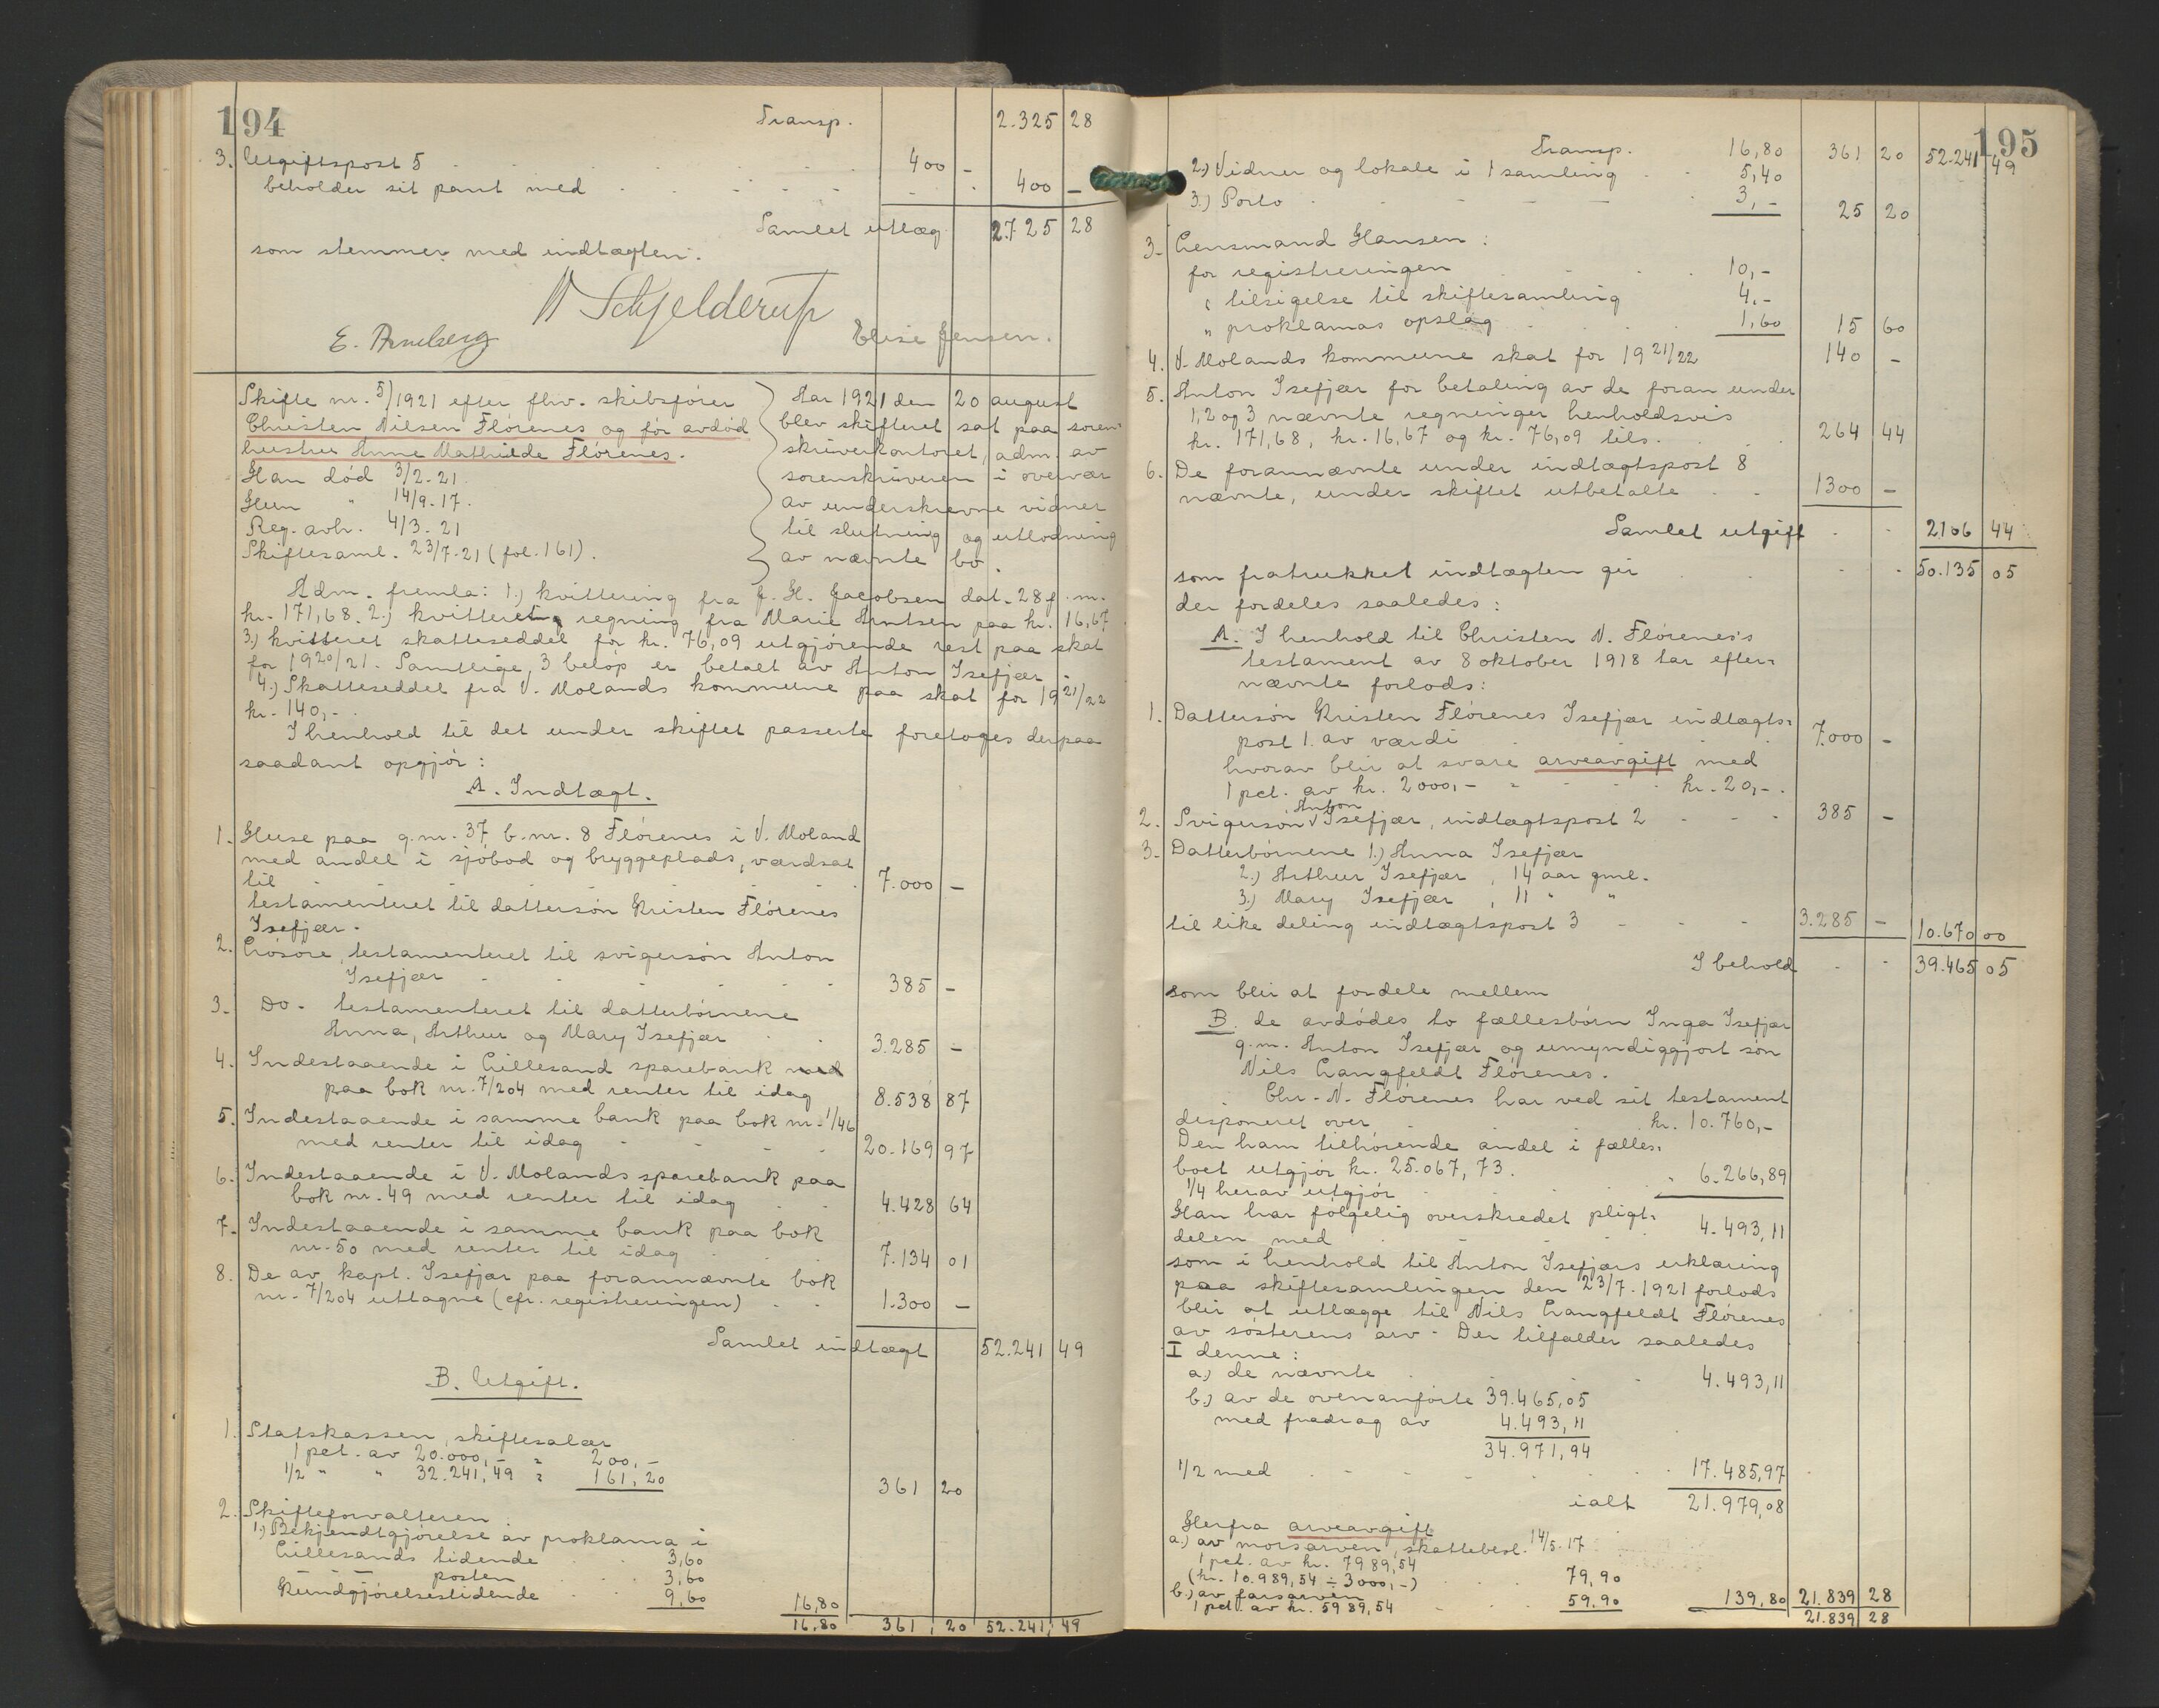 194
Transp. 2.325 28
3. Utgiftspost 5 400 -
beholder sit pant med 400 -
Samlet utlæg 2725 28
som stemmer med indtægten.
N Schjelderup
E. Arneberg Elise Jensen.
Skifte nr. 5/1921 efter fhv. skibsfører
Christen Nilsen Flörenes og för avdöd
hustru Anne Mathilde Flörenes.
Han död 3/2-21.
Hun " 14/9-17.
Reg. avh. 4/3-21
Skiftesaml. 23/7-21 (fol. 161).
Aar 1921 den 20 august
blev skifteret sat paa soren-
skriverkontoret, adm. av
sorenskriveren i overvær
av underskrevne vidner
til slutning og utlodning
av nævnte bo.
Adm. fremla: 1.) kvittering fra J. H. Jacobsen dat. 28 f. m.
kr. 171,68. 2.) kvittert regning fra Marie Arntsen paa kr. 16,67
3.) kvitteret skatteseddel for kr. 76,09 utgjörende rest paa skat
for 1920/21. Samtlige 3 belöp er betalt av Anton Isefjær.
4.) Skatteseddel fra V. Molands kommune paa skat for 1921/22
kr. 140,-.
I henhold til det under skiftet passerte foretoges derpaa
saadant opgjör:
A. Indtægt.
1. Huse paa g.nr. 37, b.nr. 8 Flörenes i V. Moland
med andel i sjöbod og bryggeplads, værdsat
til 7.000 -
testamenteret til dattersön Kristen Flörenes
Isefjær.
2. Lösöre, testamenteret til svigersön Anton
Isefjær 385 -
3. Do. testamenteret til datterbörnene
Anna, Arthur og Mary Isefjær 3.285 -
4. Indestaaende i Lillesand sparebank med
paa bok nr. 7/204 med renter til idag 8.538 87
5. Indestaaende i samme bank paa bok nr. 1/46
med renter til idag 20.169 97
6. Indestaaende i V. Molands sparebank paa
bok nr. 49 med renter til idag 4.428 64
7. Indestaaende i samme bank paa bok
nr. 50 med renter til idag 7.134 01
8. De av kapt. Isefjær paa forannævnte bok
nr. 7/204 uttagne (cfr. registreringen) 1.300 -
Samlet indtægt 52.241 49
B. Utgift.
1. Statskassen, skiftesalær
1 pct. av 20.000,- = 200,-
1/2 " " 32.241,49 = 161,20 361 20
2. Skifteforvalteren
1.) Bekjendtgjörelse av proklama i
Lillesands tidende 3,60
— — posten 3,60
Kundgjörelsestidende 9,60 16,80
16,80 361 20 52.241 49
195
Transp. 16,80 361 20 52.241 49
2.) Vidner og lokale i 1 samling 5,40
3.) Porto 3,- 25 20
3. Lensmand Hansen:
for registreringen 10,-
" tilsigelse til skiftesamling 4,-
" proklamas opslag 1,60 15 60
4. V. Molands kommune skat for 1921/22 140 -
5. Anton Isefjær for betaling av de foran under
1, 2 og 3 nævnte regninger henholdsvis
kr. 171,68, kr. 16,67 og kr. 76,09 tils. 264 44
6. De forannævnte under indtægtspost 8
nævnte, under skiftet utbetalte 1300 -
Samlet utgift 2106 44
som fratrukket indtægten gir 50.135 05
der fordeles saaledes:
A. I henhold til Christen N. Flörenes's
testament av 8 oktober 1918 tar efter-
nævnte forlods:
1. Dattersön Kristen Flörenes Isefjær indtægts-
post 1. av værdi 7.000 -
hvorav blir at svare arveavgift med
1 pct. av kr. 2000,- = kr. 20,-.
2. Svigersön Anton Isefjær, indtægtspost 2 385 -
3. Datterbörnene 1.) Anna Isefjær
2.) Arthur Isefjær, 14 aar gml.
3.) Mary Isefjær, 11 " "
til like deling indtægtspost 3 3.285 - 10.670 00
I behold 39.465 05
som blir at fordele mellem
B. de avdödes to fællesbörn Inga Isefjær
g.m. Anton Isefjær og umyndiggjort sön
Nils Langfeldt Flörenes.
Chr. N. Flörenes har ved sit testament
disponeret over kr. 10.760,-
Den ham tilhörende andel i fælles-
boet utgjör kr. 25.067,73.
1/4 herav utgjör " 6.266,89
Han har fölgelig overskredet pligt-
delen med 4.493,11
som i henhold til Anton Isefjærs erklæring
paa skiftesamlingen den 23/7-1921 forlods
blir at utlægge til Nils Langfeldt Flörenes
av sösterens arv. Der tilfalder saaledes
I denne:
a.) de nævnte 4.493,11
b.) av de ovenanförte 39.465,05
med fradrag av 4.493,11
34.971,94
1/2 med 17.485,97
ialt 21.979,08
Herfra arveavgift
a.) av morsarven, skattebesl. 14/5-17
1 pct. av kr. 7989,54
(kr. 10.989,54 ÷ 3000,-) 79,90
b.) av farsarven
1 pct. av kr. 5989,54 59,90 139,80 21.839 28
21.839 28